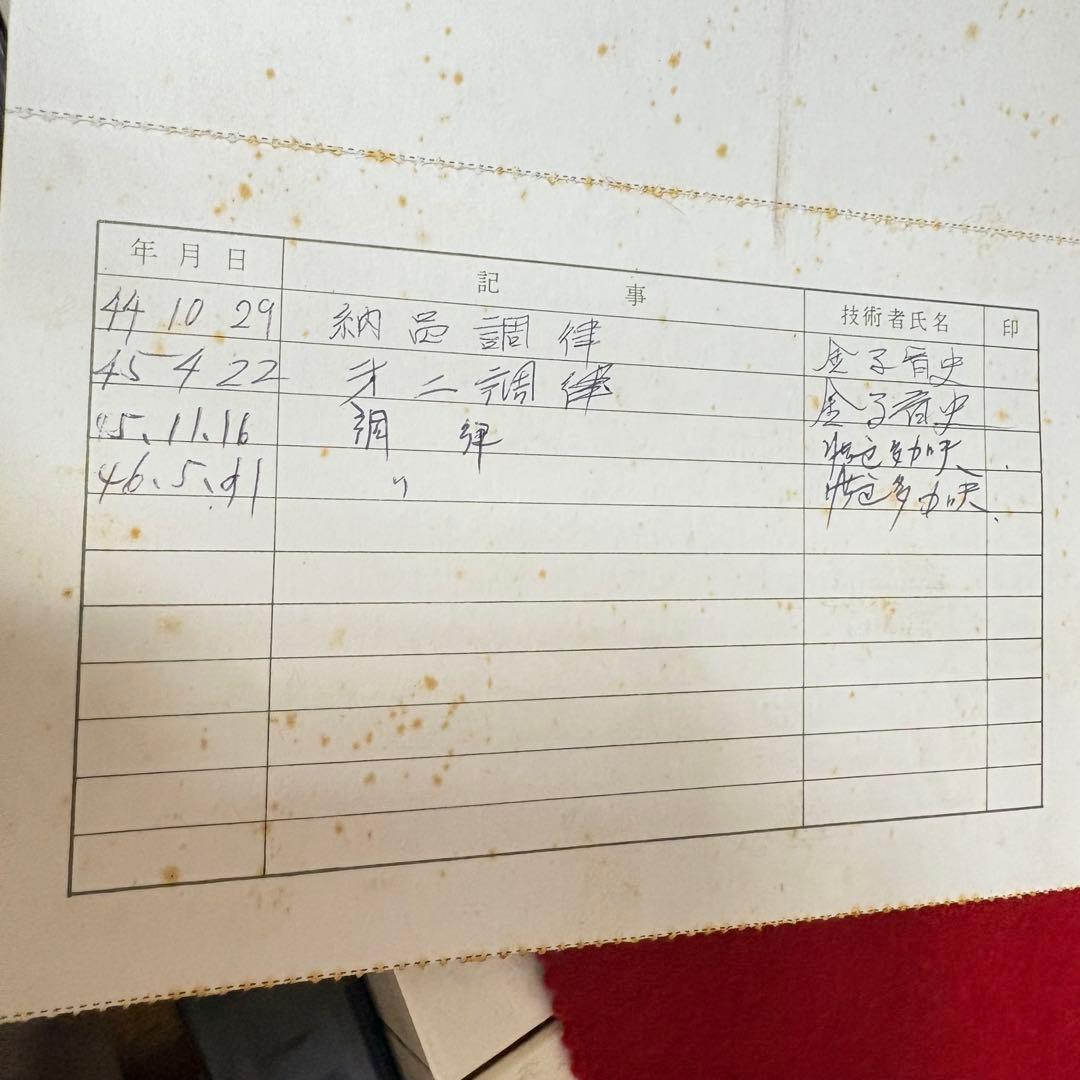 年月日 記事 技術者氏名 印
44 10 29 納品調律 金子
45 4 22 才二調律 金子
45.11.16 調律
46.5. 〃